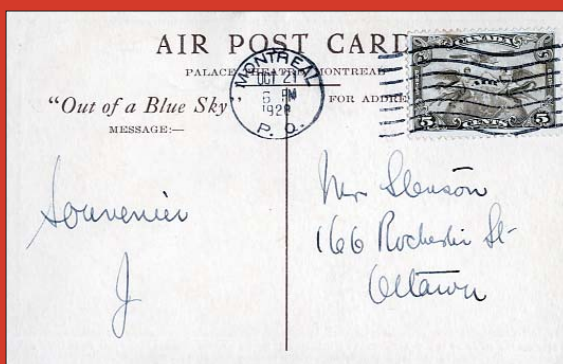 AIR POST CARD
PALACE THEATRE MONTREAL
"Out of a Blue Sky"
MESSAGE:—
FOR ADDRE
MONTREAL
OCT 21
6 PM
1928
P. Q.
CANADA
5 CENTS 5
Souvenier
J
Mr Stenson
166 Rochester St-
Ottawa